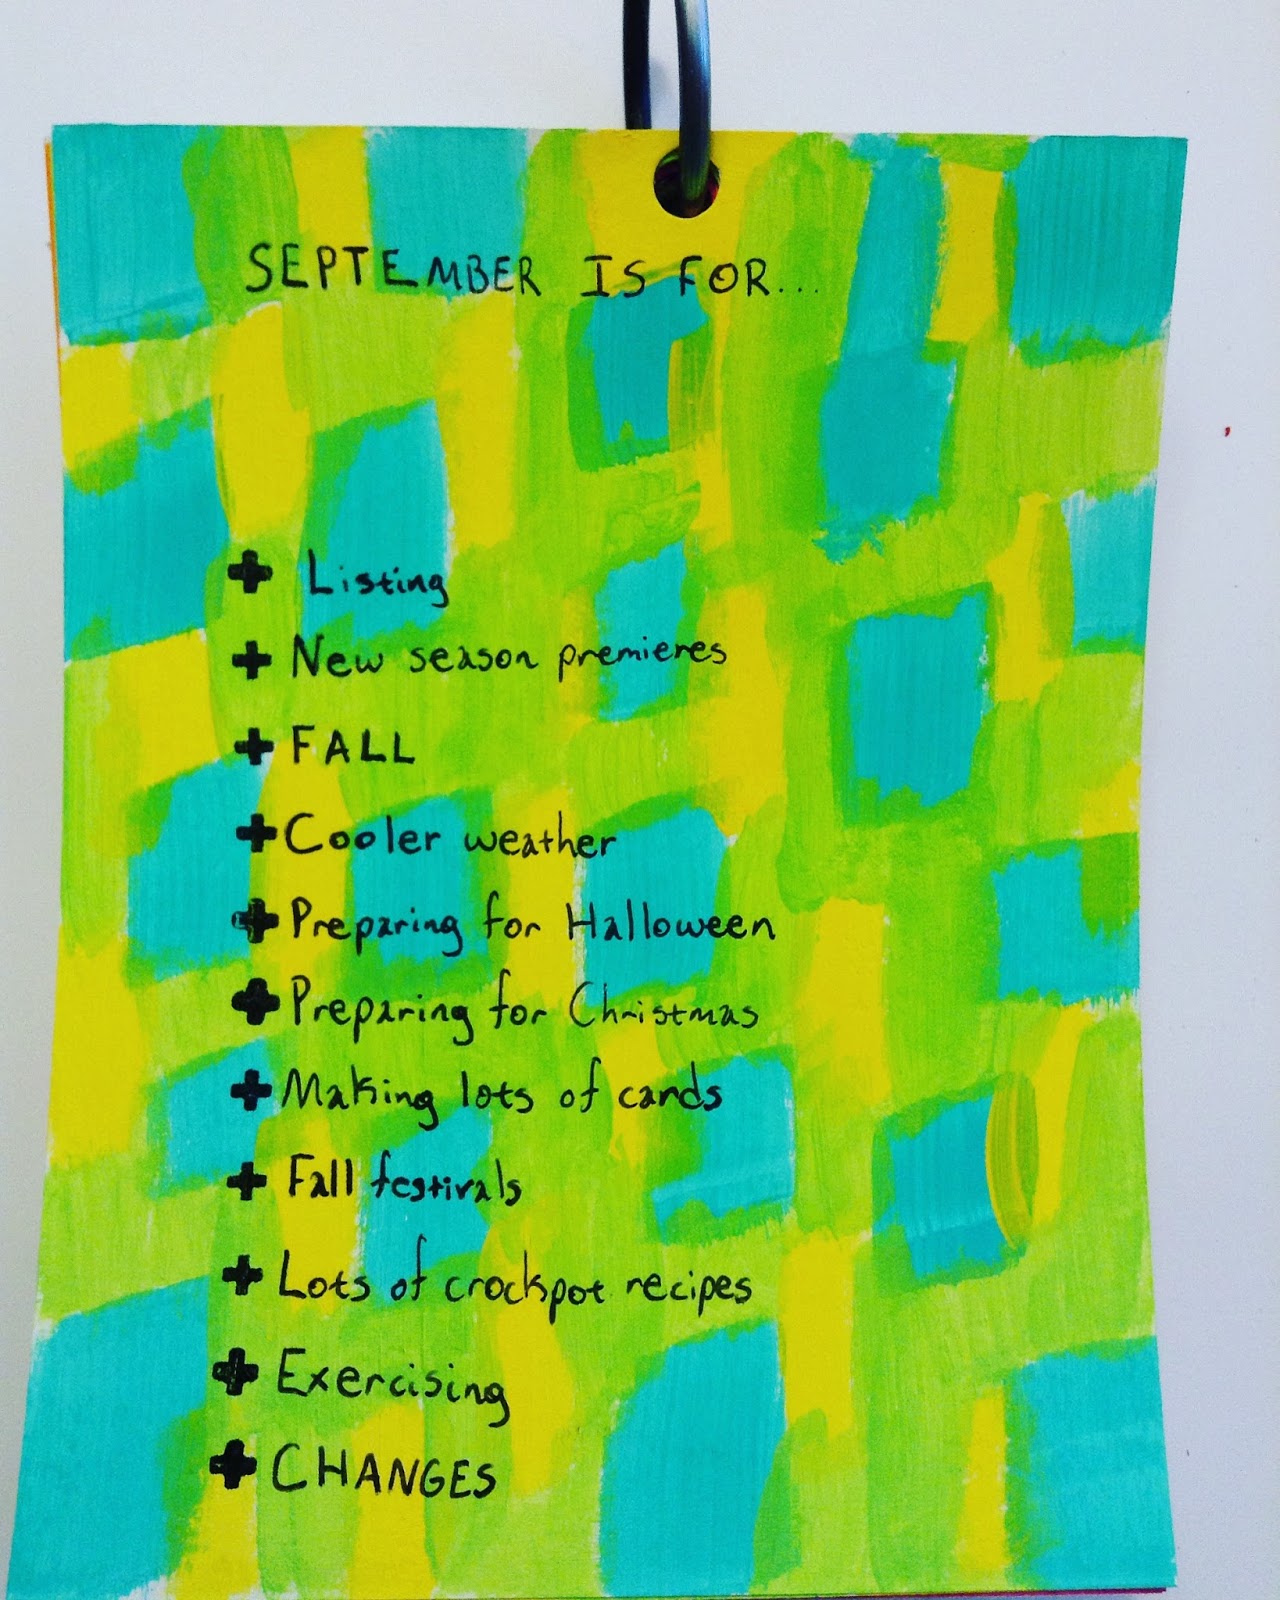 SEPTEMBER IS FOR...
+ Listing
+ New season premieres
+ FALL
+ Cooler weather
+ Preparing for Halloween
+ Preparing for Christmas
+ Making lots of cards
+ Fall festivals
+ Lots of crockpot recipes
+ Exercising
+ CHANGES